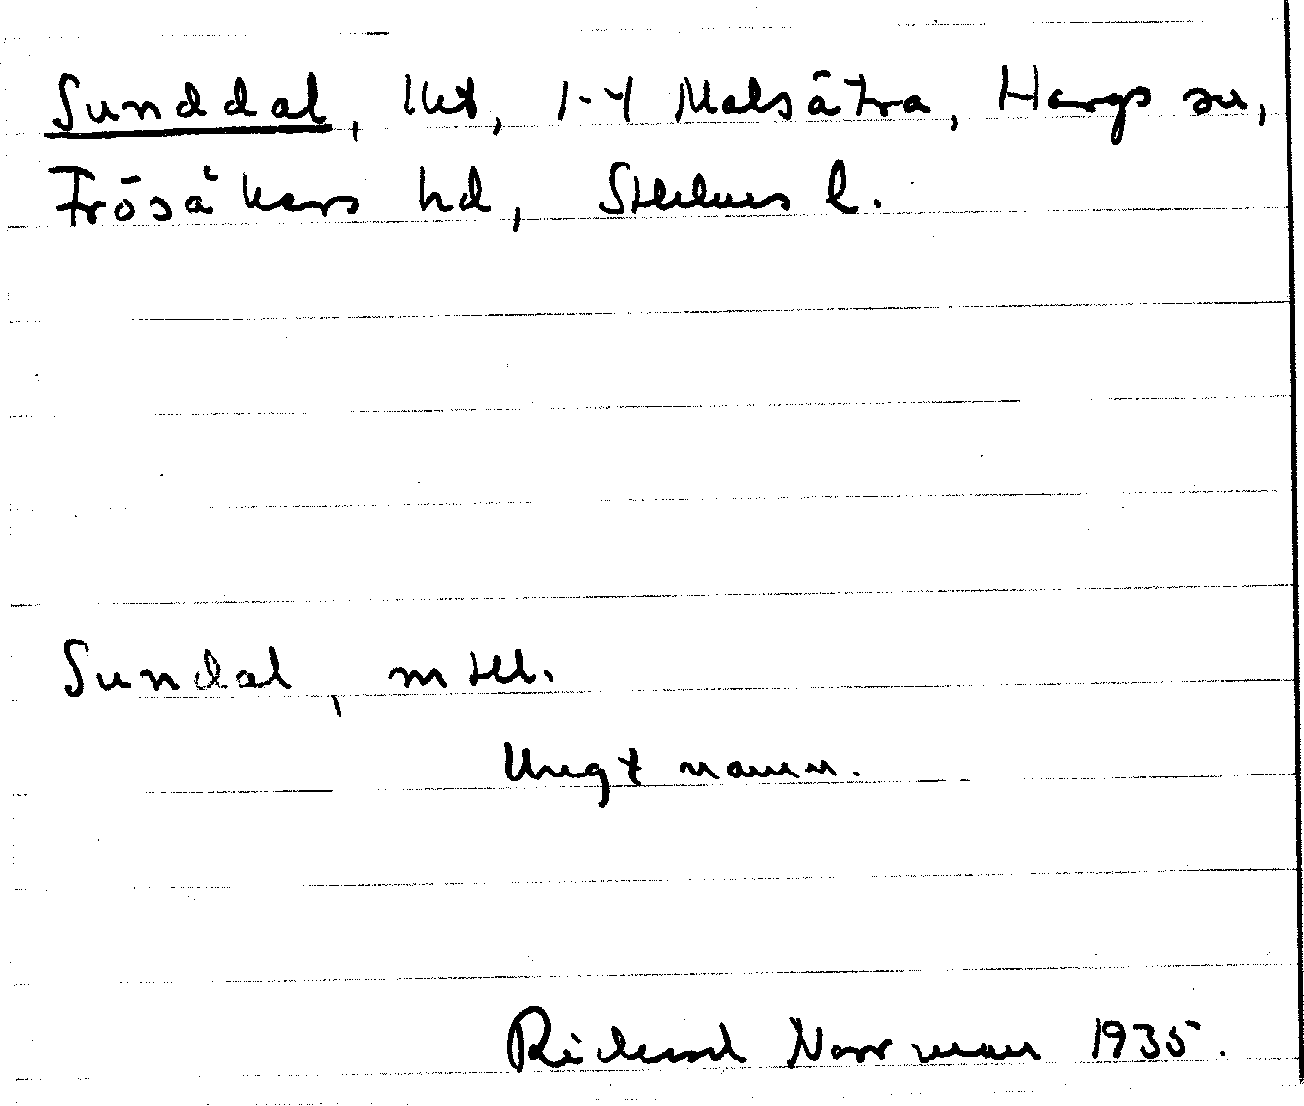 Sunddal, lht, 1-4 Malsätra, Hargs sn,
Frösåkers hd, Sthlms l.
Sundal, mtll.
Ungt namn.
Richard Norrman 1935.